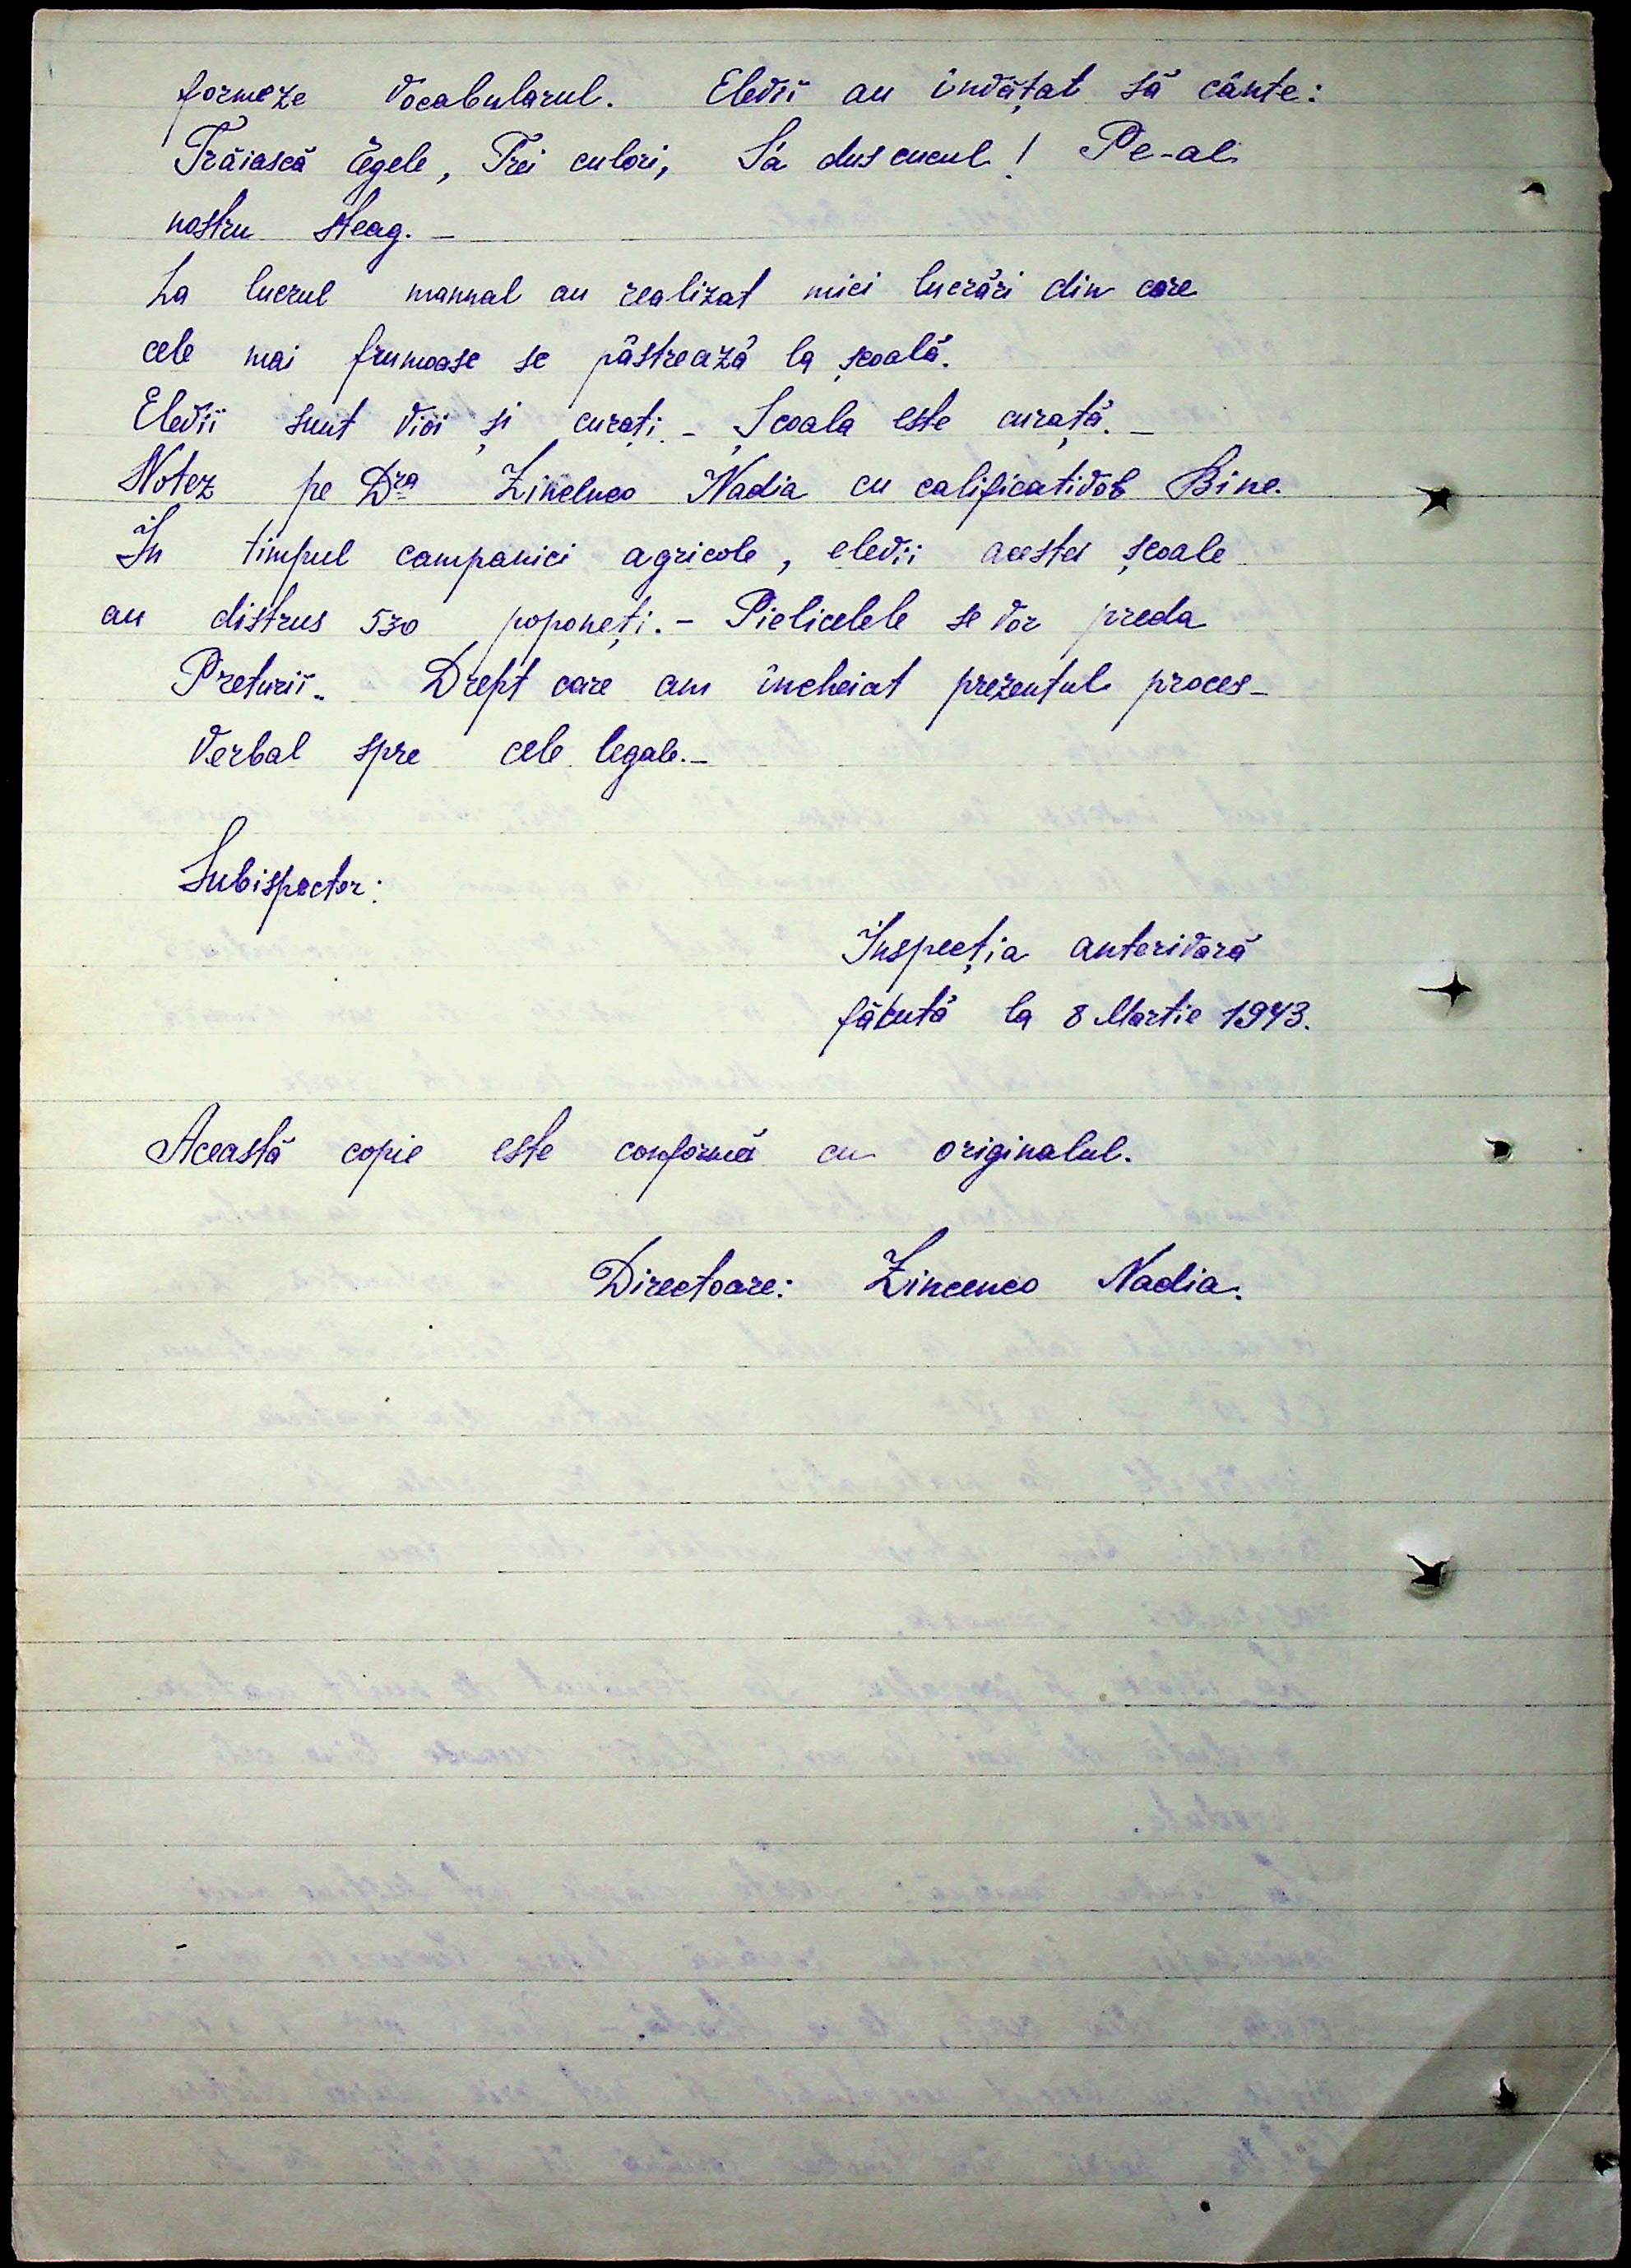 formeze vocabularul. Elevii au învățat să cânte:
Trăiască Regele, Trei culori, S'a dus cucul! Pe-al
nostru steag. -
La lucrul manual au realizat mici lucrări din care
cele mai frumoase se păstrează la școală.
Elevii sunt vioi și curați. - Școala este curată. -
Notez pe Dra Zincenco Nadia cu calificativul Bine.
În timpul campaniei agricole, elevii acestei școale
au distrus 530 poponeți. - Pielicelele se vor preda
Preturii. - Drept care am încheiat prezentul proces-
verbal spre cele legale. -
Subispector:
Inspecția anterioară
făcută la 8 Martie 1943.
Această copie este conformă cu originalul.
Directoare: Zincenco Nadia.